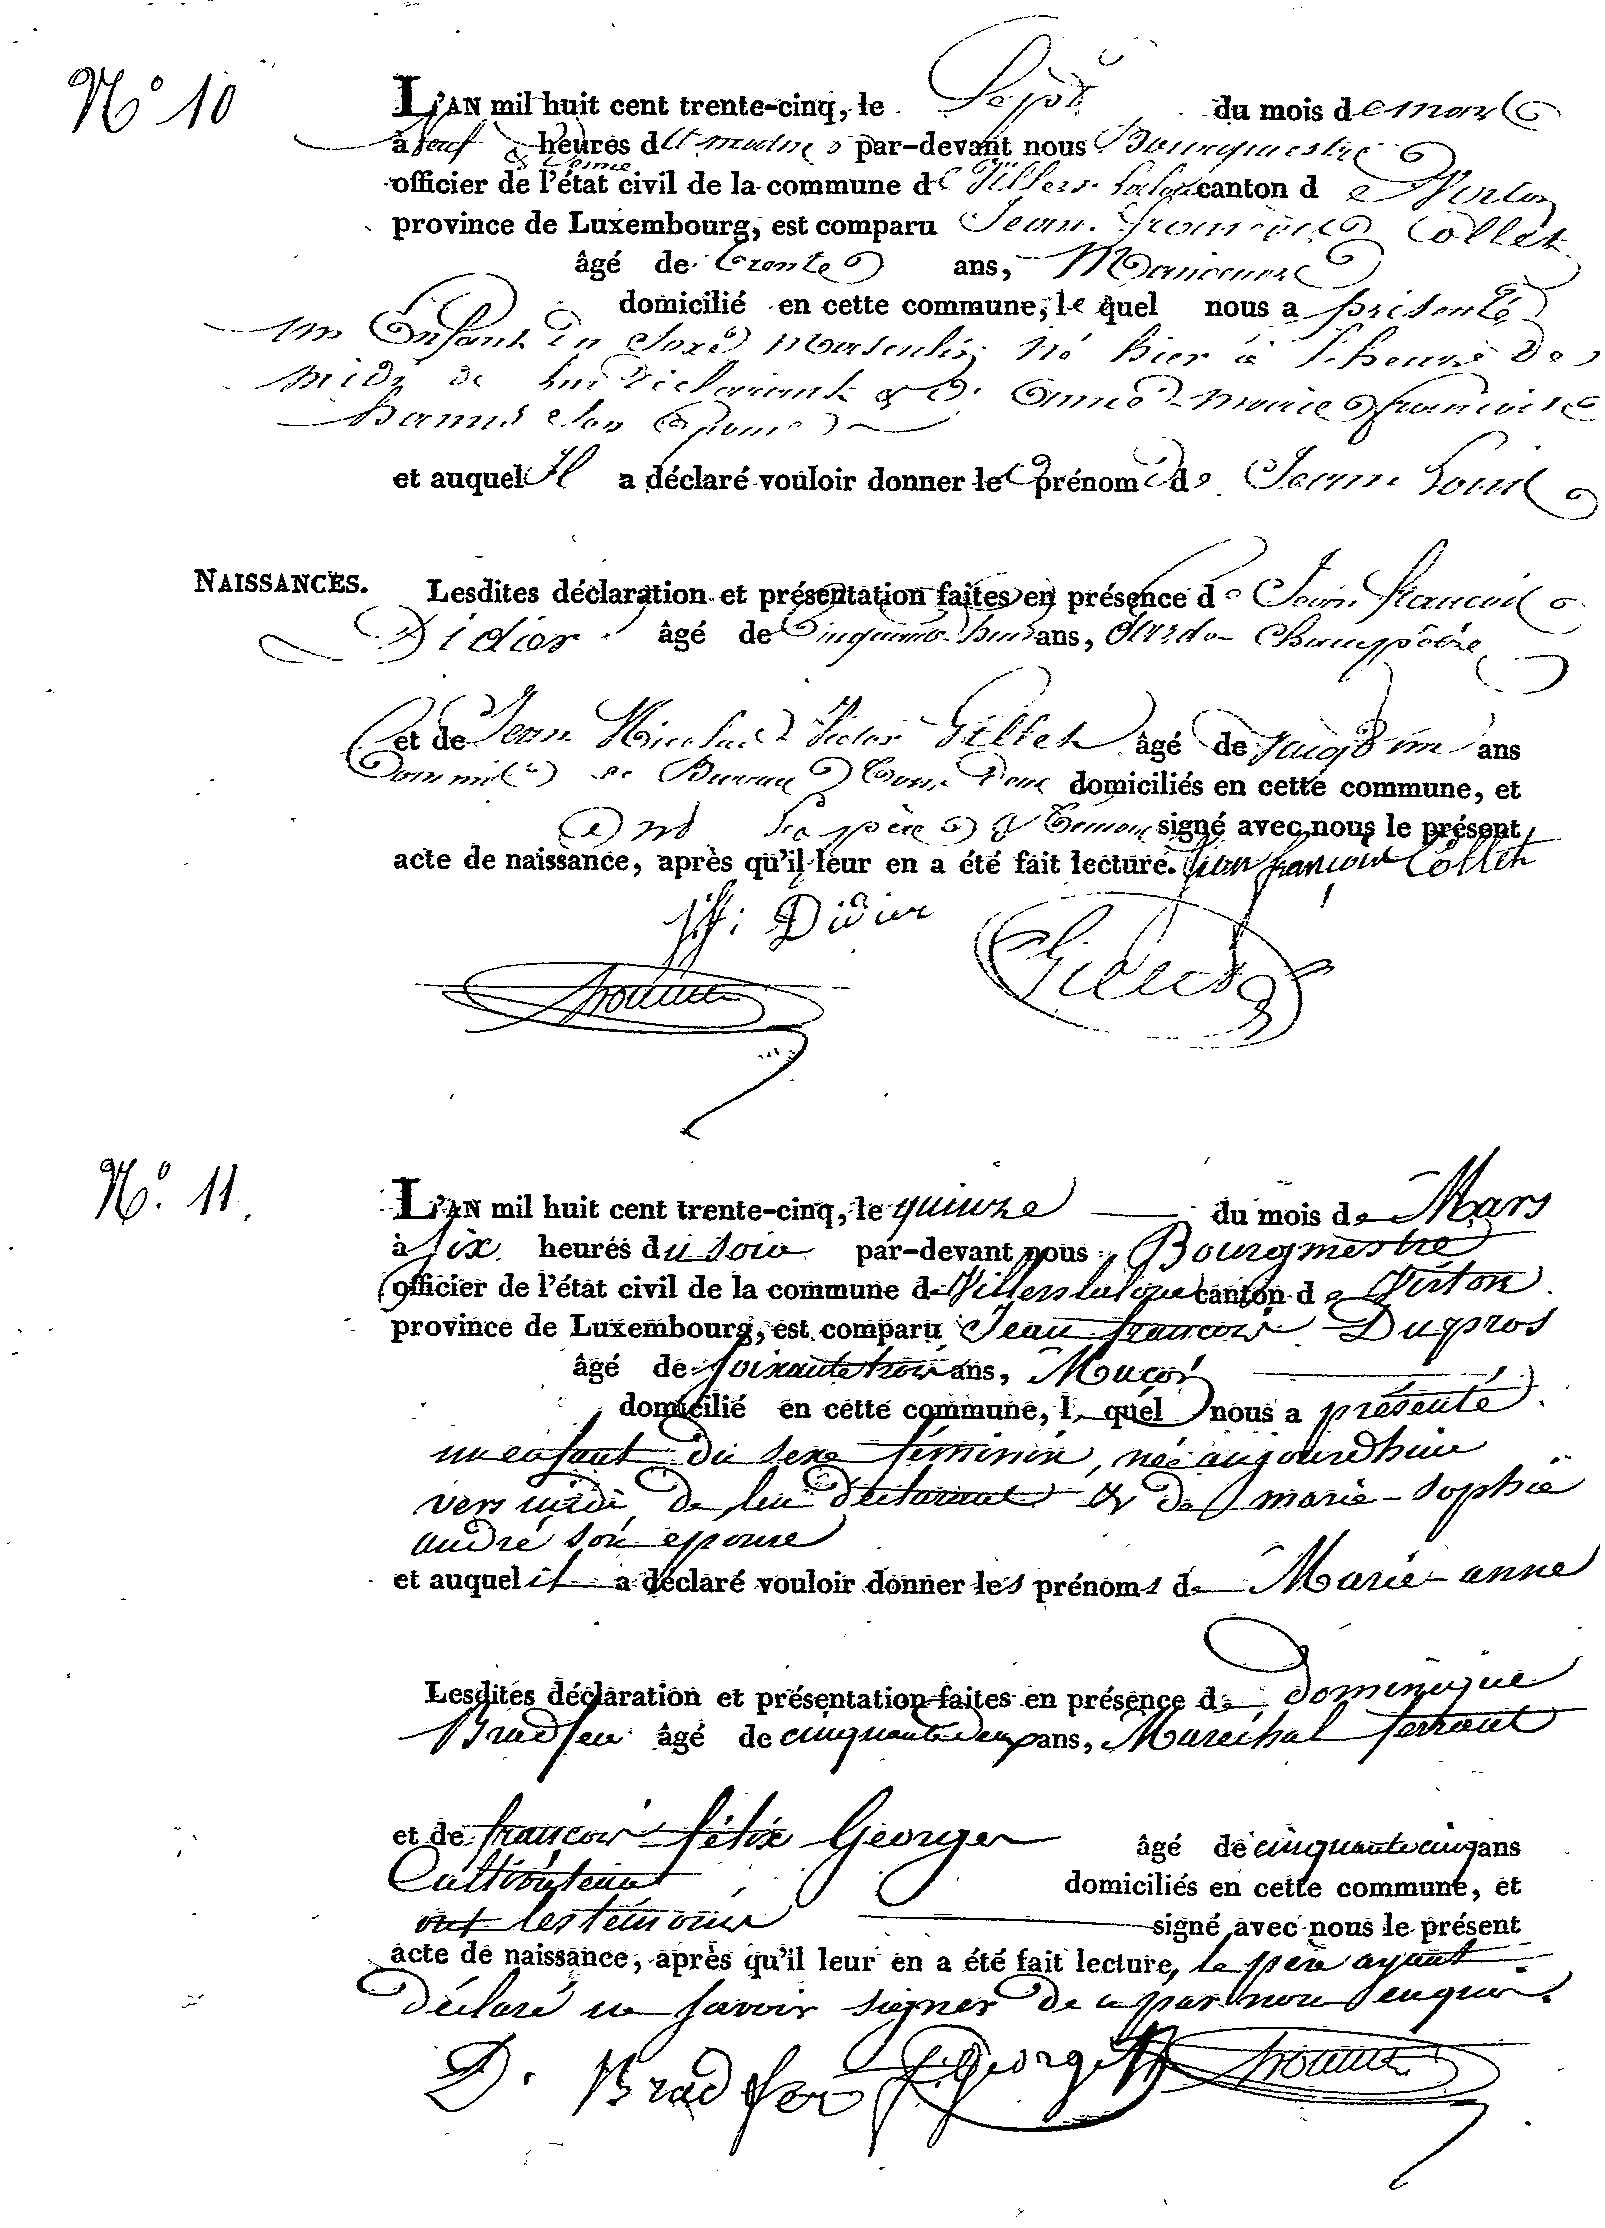 N° 10
L'AN mil huit cent trente-cinq, le Sept du mois de mars
à neuf heures du matin par-devant nous Bourgmestre
officier de l'état civil de la commune de Villers-laloue canton de Virton
province de Luxembourg, est comparu Jean françois Collet
âgé de trente ans, Manoeuvre
domicilié en cette commune, le quel nous a présenté
un Enfant du Sexe Masculin né hier à l'heure de
midi de lui déclarant & d' Anne-marie françoise
son Epouse
et auquel Il a déclaré vouloir donner le prénom de Jean Louis
NAISSANCES. Lesdites déclaration et présentation faites en présence de Jean françois
Didier âgé de Cinquante huit ans, Garde Champêtre
et de Jean Nicolas Victor Gillet âgé de vingt un ans
Commis de Bureau domiciliés en cette commune, et
ont le père & témoins signé avec nous le présent
acte de naissance, après qu'il leur en a été fait lecture. Jean françois Collet
J f: Didier Gillet
N°. 11.
L'AN mil huit cent trente-cinq, le quinze du mois de Mars
à six heures du soir par-devant nous Bourgmestre
officier de l'état civil de la commune de Villerslaloue canton de Virton
province de Luxembourg, est comparu Jean françois Dupros
âgé de soixante trois ans, Maçon
domicilié en cette commune, l quel nous a présenté
un enfant du sexe féminin, née aujourdhui
vers midi de lui déclarant & de marie-sophie
andré son epouse
et auquel il a déclaré vouloir donner les prénoms de Marie-anne
Lesdites déclaration et présentation faites en présence de dominique
Bradfer âgé de cinquante deux ans, Maréchal ferrant
et de françois félix Georges âgé de cinquante cinq ans
Cultivateur domiciliés en cette commune, et
ont les témoins signé avec nous le présent
acte de naissance, après qu'il leur en a été fait lecture, le père ayant
déclaré ne savoir signer de ce par nous enquis.
D. Bradfer f. f. Georges